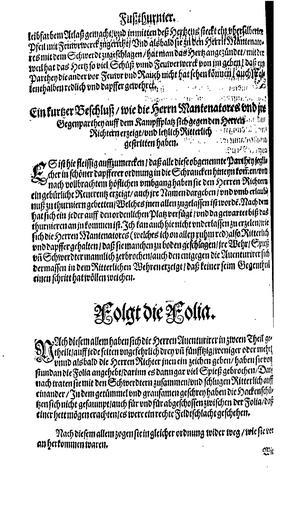 Fußthurnier.
leibfarben Atlaß gemacht/und inmitten deß Hertzens steckt ein
Pfeil mit Fewrwerck zugericht/ Und als bald sie zu den Herrn Mantenato-
rn mit dem Schwerdt zugeschlagen/ hat man das Hertz angezündet/ mit
weil das Hertz so viel Schüß und Fewrwerck von im geben/ daß ein
Parthey die ander vor Fewr und Rauch nicht hat sehen können/ auch
lenthalben redlich und dapffer gewehret.
Ein kurtzer Beschluß/ wie die Herrn Mantenatores und jre
Gegenpartheyen auff dem Kampffplatz sich gegen den Herrn
Richtern erzeigt/ und letzlich Ritterlich
gestritten haben.
ES ist hie fleissig auffzumercken/ daß alle diese obgenennte Parthey jegli-
cher in schöner dapfferer ordnung in die Schrancken hineyn kom̃en/
nach vollbrachtem höflichen umbgang haben sie den Herren Richtern
ein gebürliche Reverentz erzeigt/ auch jre Namen dargeben/ und umb erlaub-
nuß zu thurnieren gebetten/ Welches jnen allen zugelassen ist worden. Nach dem
hat sich ein jeder auff den ordenlichen Platz verfügt/ und da gewartet biß das
thurnieren an jn kommen ist. Ich kan auch hie nicht underlassen zu erzelen/ wie
sich die Herren Mantenatores (welches ich on allen rhum red) also Ritterlich
und dapffer gehalten/ daß sie manchen zu boden geschlagen/ jre Wehr/ Spieß
uñ Schwerdter mannlich zerbrochen/ auch den entgegen die Aventurirer sich
dermassen in dem Ritterlichen Wehren erzeigt/ daß keiner seim Gegentheil
einen schritt hat wöllen weichen.
Folgt die Folia.
NAch diesem allem haben sich die Herren Aventurirer in zween Theil ge-
theilt/ auff jede seiten ungefehrlich drey uñ fünfftzig/ weniger oder mehr/
und als bald die Herren Richter jnen ein zeichen geben/ haben sie von
stundan die Folia angehebt/ darinn es dann gar viel Spieß gebrochen/ Dar-
nach traten sie mit den Schwerdtern zusammen/ und schlugen Ritterlich auff
einander/ In dem getümmel und grausamen geschrey haben die Hackenschü-
tzen sich nicht gesaumpt/ auch für und für abgeschossen zwischen der Folia/ daß
einer hett mögen erachten/ es were ein rechte Feldtschlacht geschehen.
Nach diesem allem zogen sie in gleicher ordnung wider weg/ wie sie vor
an herkommen waren.